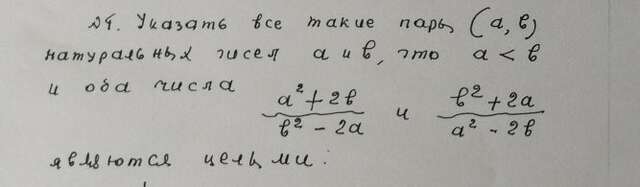 №4. Указать все такие пары (a, b)
натуральных чисел a и b, что a < b
и оба числа (a² + 2b)/(b² - 2a) и (b² + 2a)/(a² - 2b)
являются целыми.